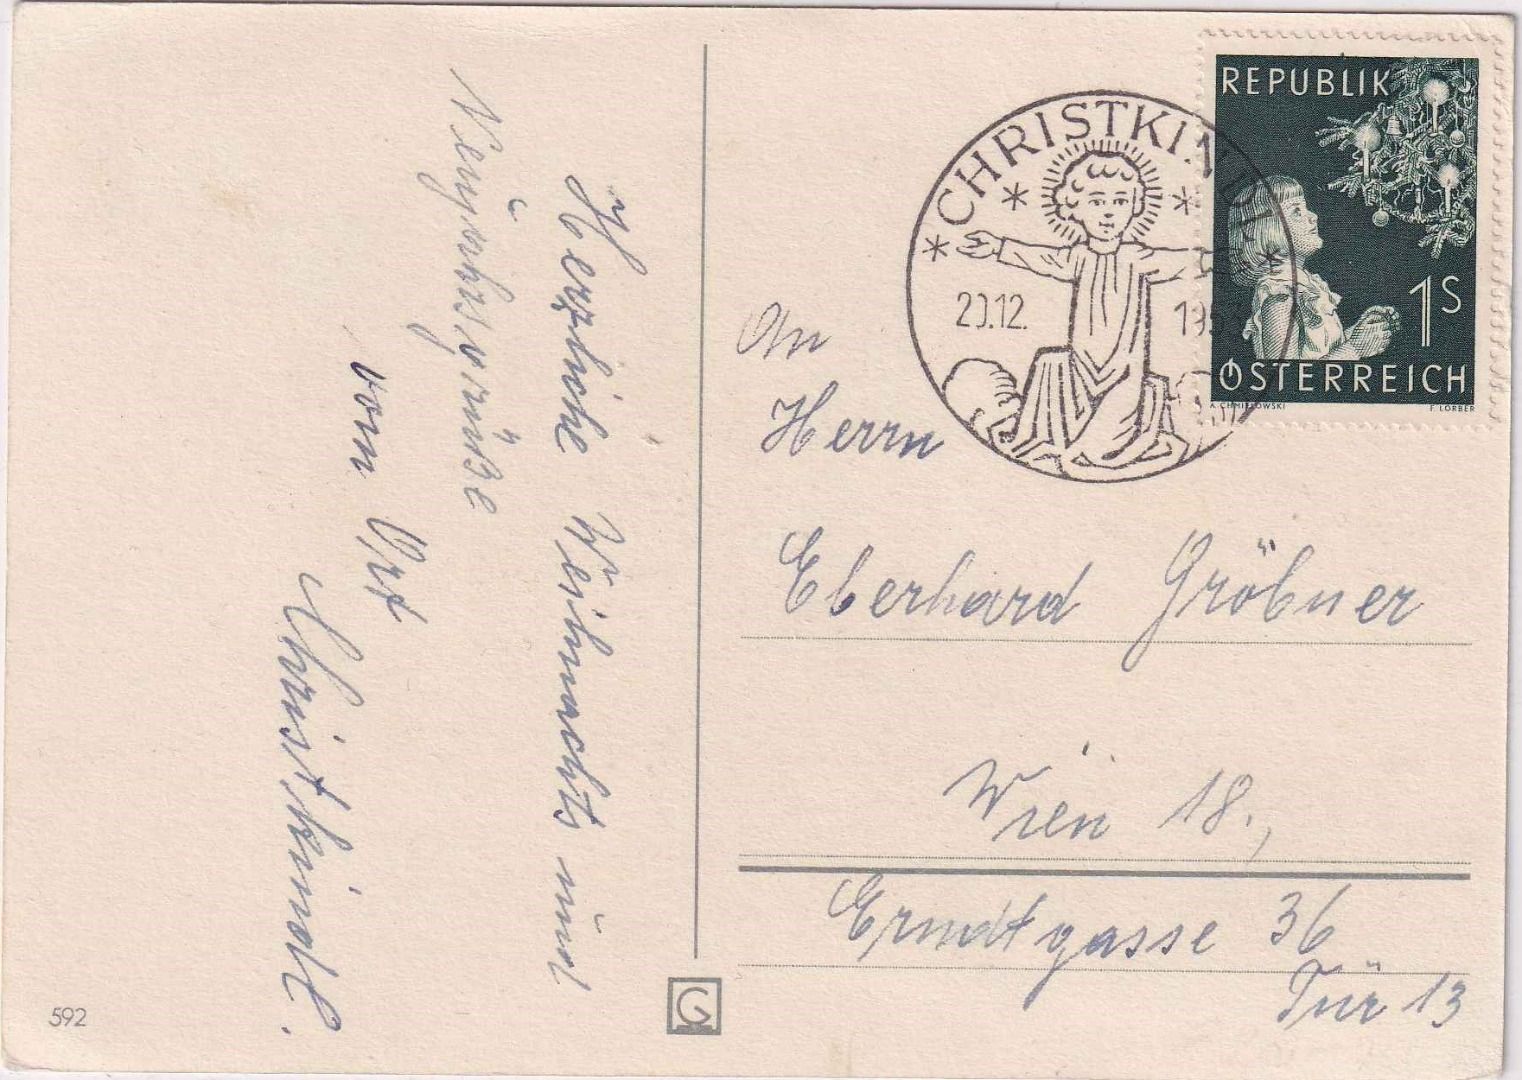 Herzliche Weihnachts und
Neujahrsgrüße
vom Ort
Christkindl.
592
G
CHRISTKINDL
20.12. 195
REPUBLIK
1S
ÖSTERREICH
A. CHMIELOWSKI
F. LORBER
An
Herrn
Eberhard Gröbner
Wien 18.,
Erndtgasse 36
Tür 13